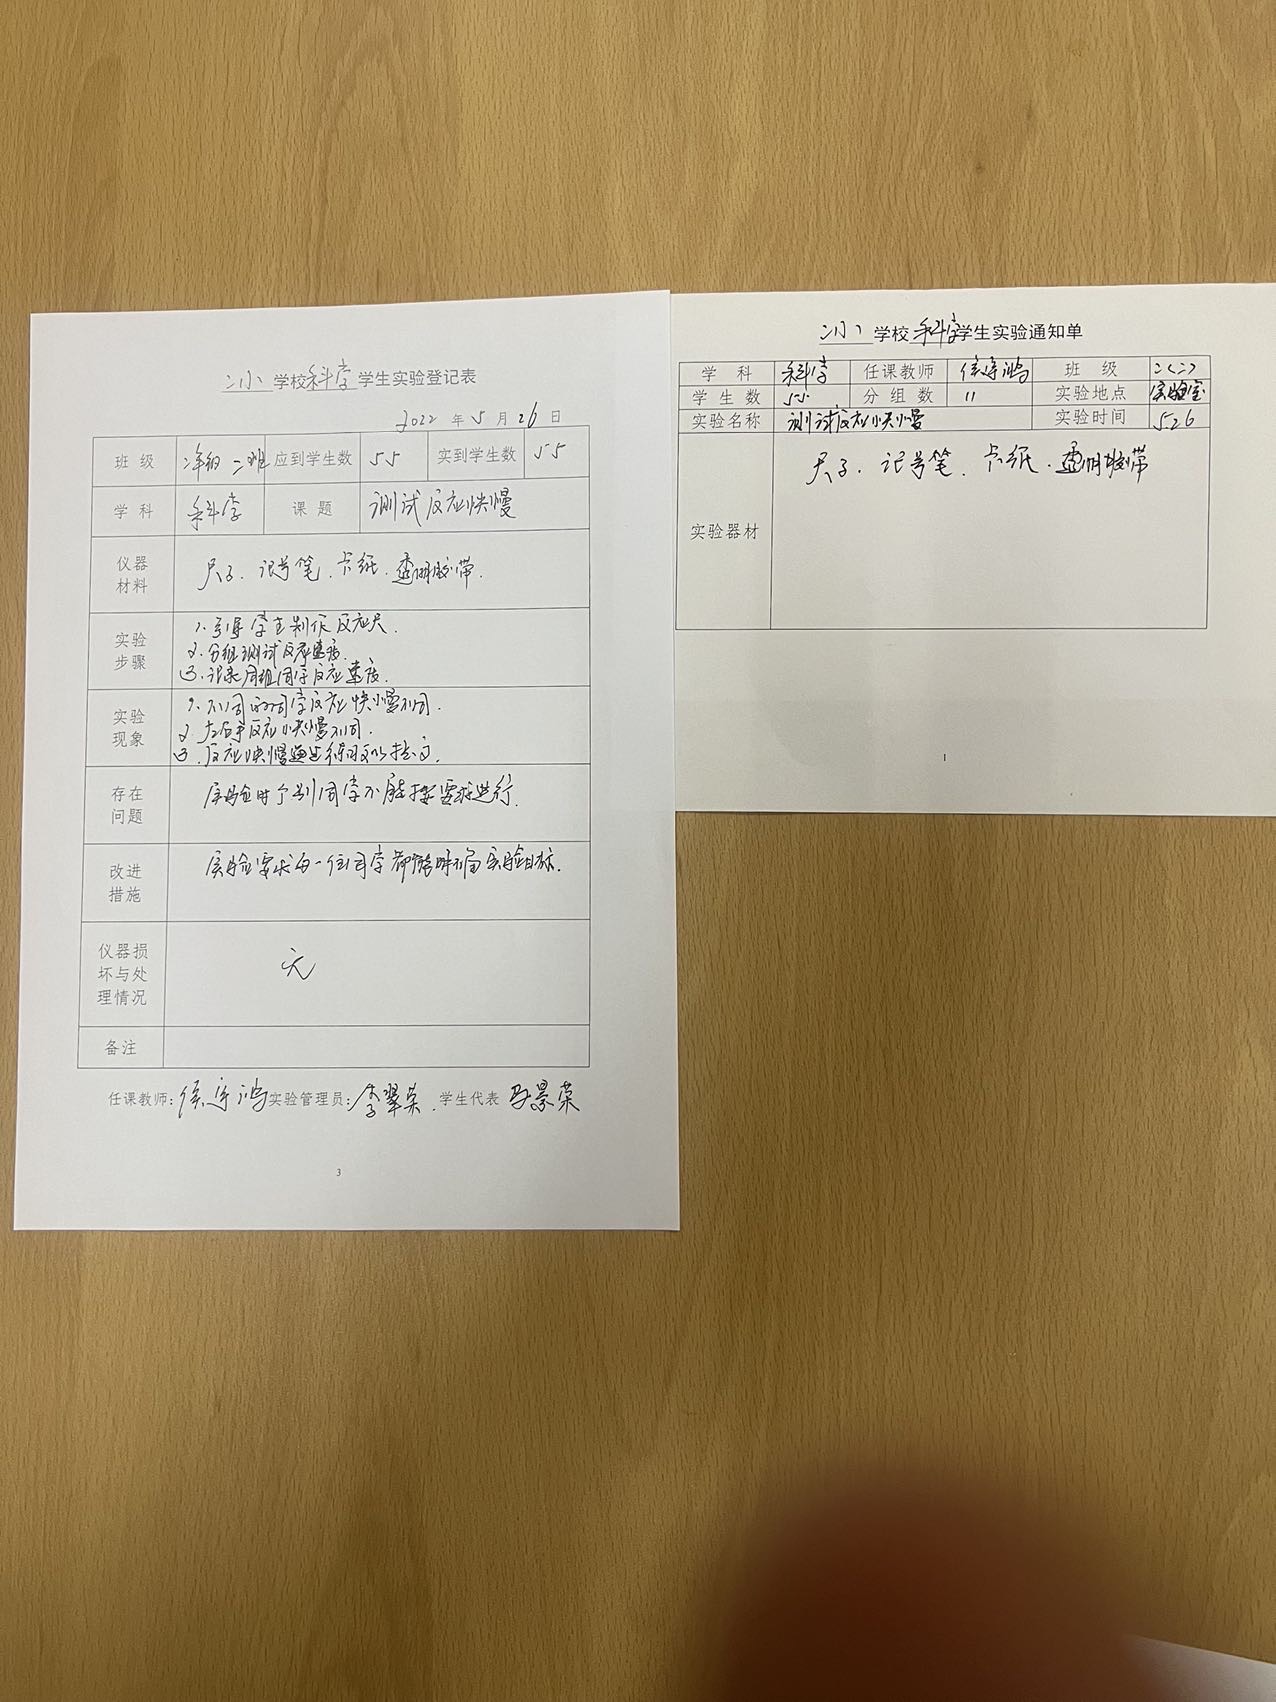 二小 学校 科学 学生实验登记表
2022 年 5 月 26 日
班 级 二年级 二班 应到学生数 55 实到学生数 55
学 科 科学 课 题 测试反应快慢
仪器材料 尺子、记号笔、卡纸、透明胶带.
实验步骤 1. 引导学生制作反应尺.
2. 分组测试反应速度.
3. 记录同组同学反应速度.
实验现象 1. 不同的同学反应快慢不同.
2. 左右手反应快慢不同.
3. 反应快慢通过练习可以提高.
存在问题 实验时个别同学不能按要求进行.
改进措施 实验要求每一位同学都能明确实验目标.
仪器损坏与处理情况 无
备注
任课教师: 实验管理员: 李翠荣. 学生代表 马景荣
3
二小 学校 科学 学生实验通知单
学 科 科学 任课教师 班 级 二(二)
学 生 数 55 分 组 数 11 实验地点 实验室
实验名称 测试反应快慢 实验时间 5.26
实验器材 尺子、记号笔、卡纸、透明胶带
1